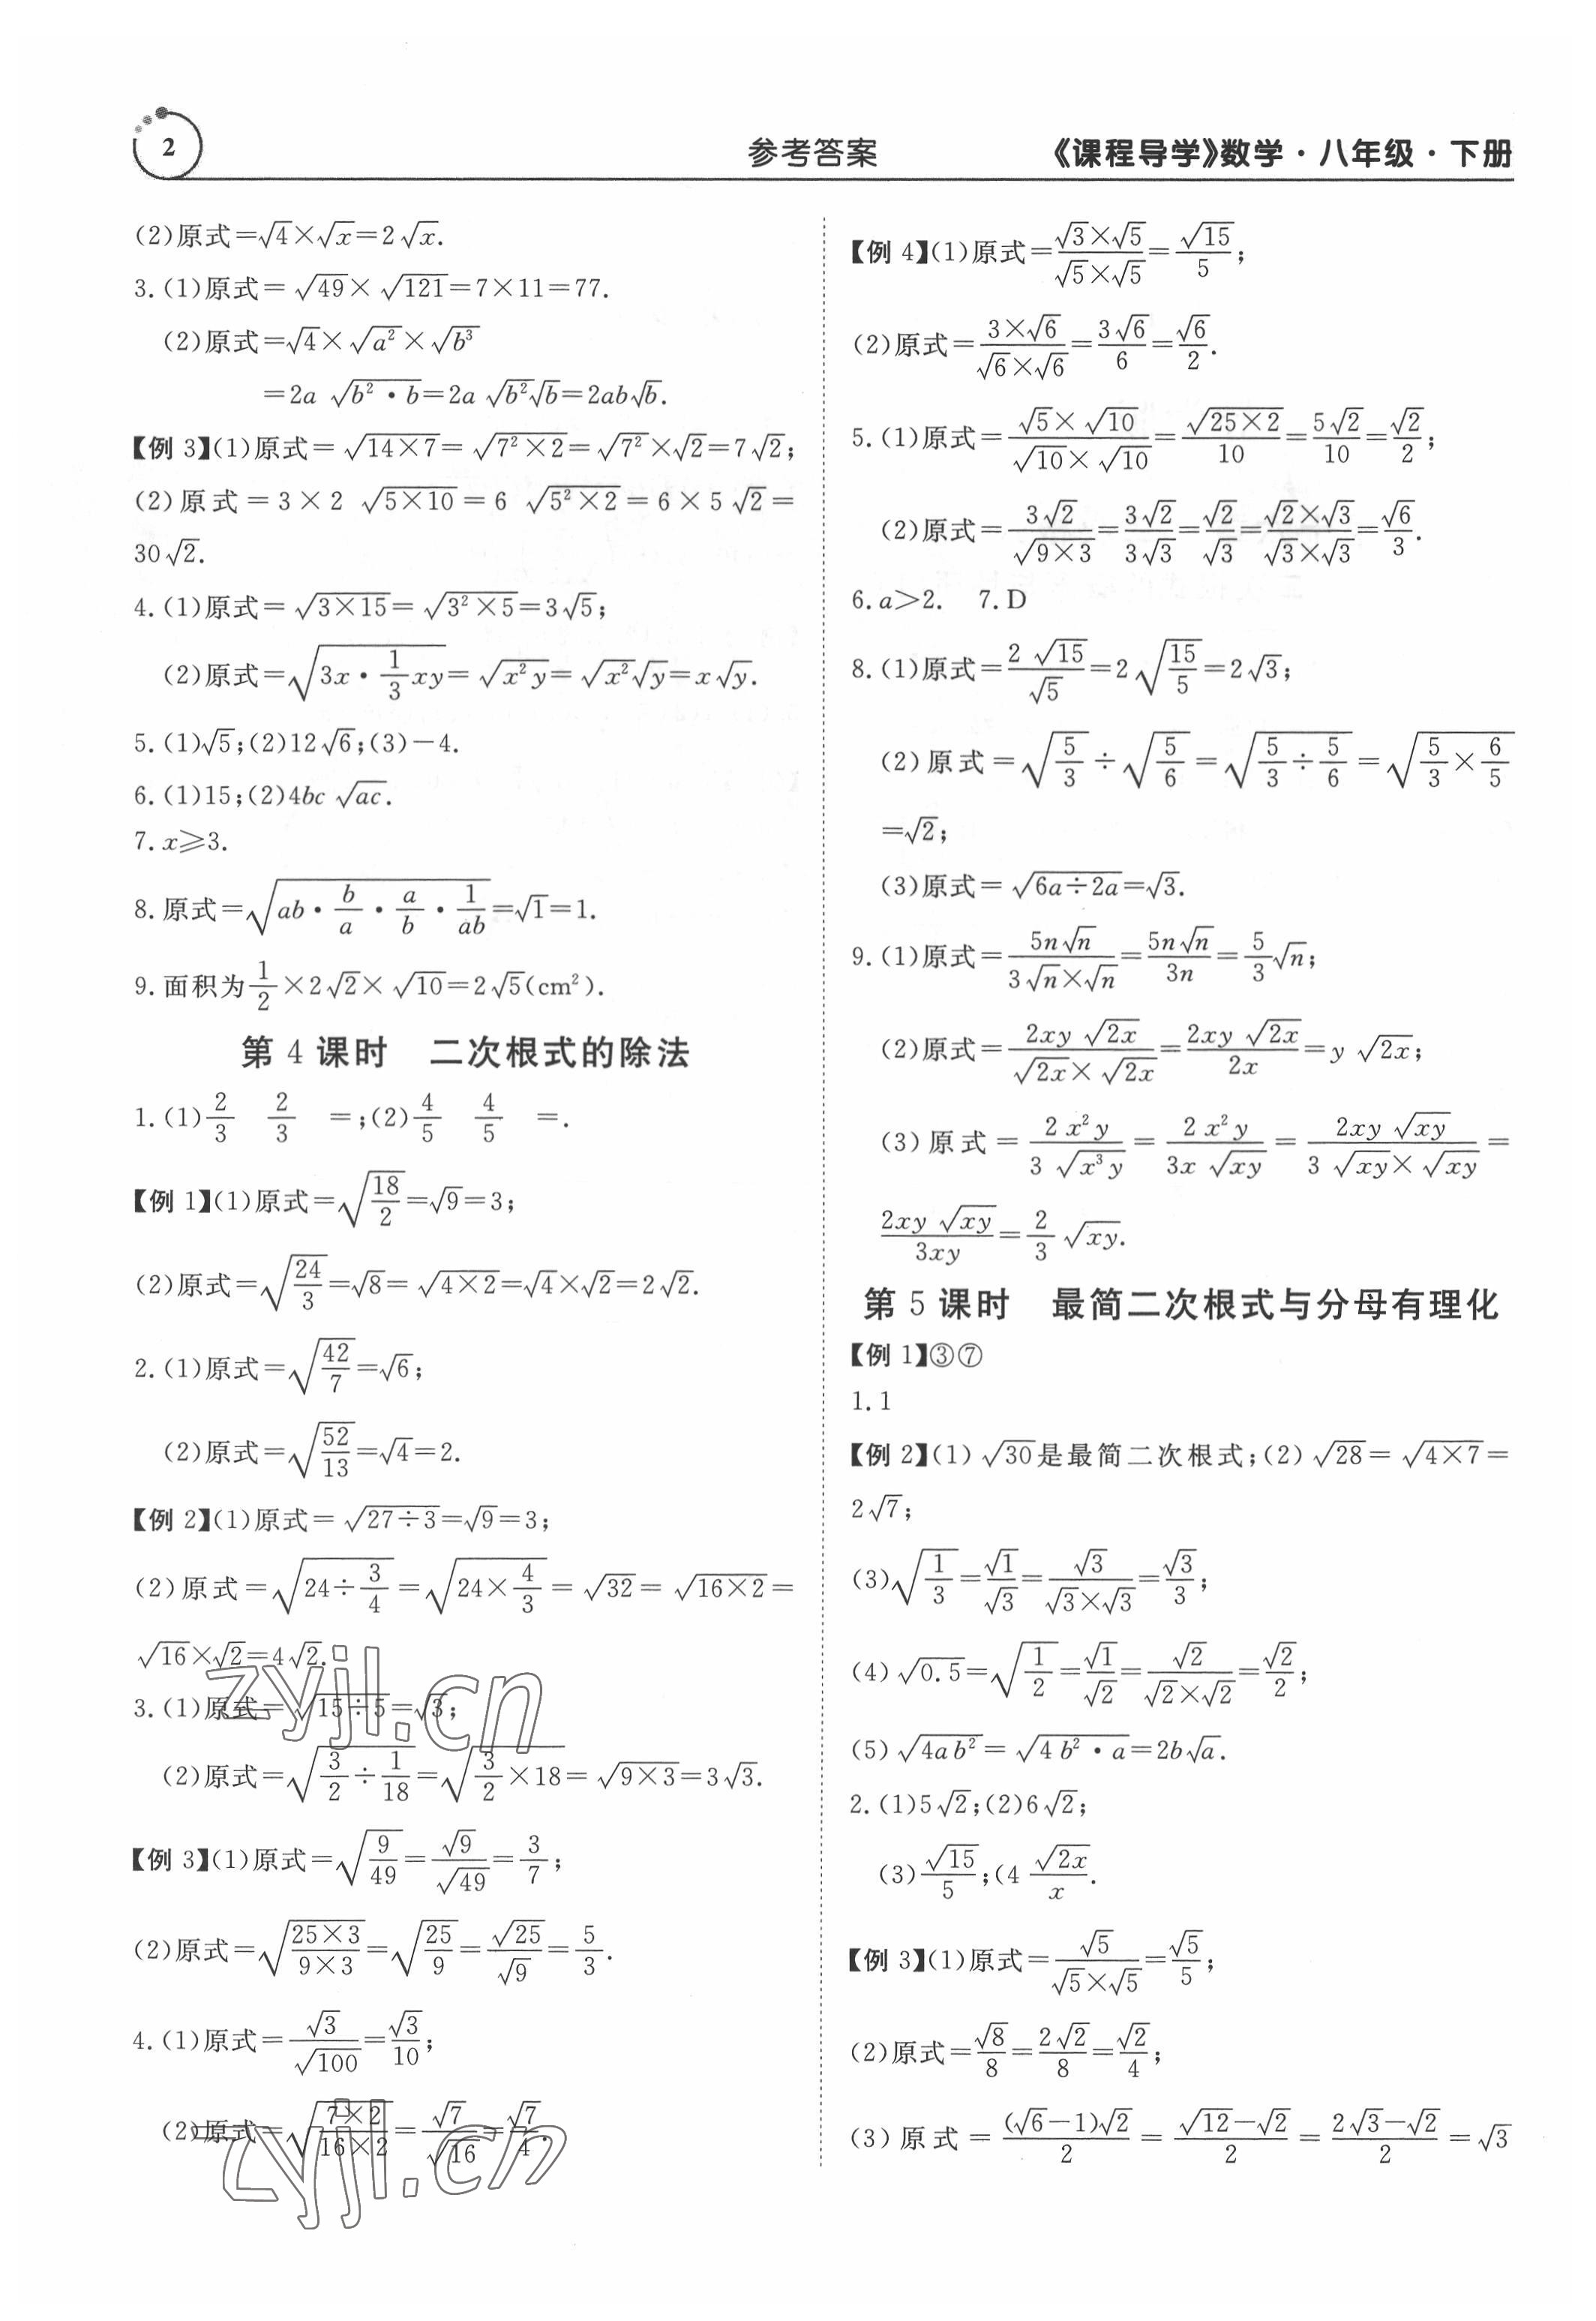 2
参考答案 《课程导学》数学·八年级·下册
(2)原式=√4×√x=2√x.
3.(1)原式=√49×√121=7×11=77.
(2)原式=√4×√a²×√b³
=2a√(b²·b)=2a√b²√b=2ab√b.
【例 3】(1)原式=√(14×7)=√(7²×2)=√7²×√2=7√2;
(2)原式=3×2√(5×10)=6√(5²×2)=6×5√2=
30√2.
4.(1)原式=√(3×15)=√(3²×5)=3√5;
(2)原式=√(3x·1/3xy)=√(x²y)=√x²√y=x√y.
5.(1)√5;(2)12√6;(3)-4.
6.(1)15;(2)4bc√ac.
7.x⩾3.
8.原式=√(ab·b/a·a/b·1/ab)=√1=1.
9.面积为1/2×2√2×√10=2√5(cm²).
第 4 课时 二次根式的除法
1.(1)2/3 2/3 =;(2)4/5 4/5 =.
【例 1】(1)原式=√(18/2)=√9=3;
(2)原式=√(24/3)=√8=√(4×2)=√4×√2=2√2.
2.(1)原式=√(42/7)=√6;
(2)原式=√(52/13)=√4=2.
【例 2】(1)原式=√(27÷3)=√9=3;
(2)原式=√(24÷3/4)=√(24×4/3)=√32=√(16×2)=
√16×√2=4√2.
3.(1)原式=√(15÷5)=√3;
(2)原式=√(3/2÷1/18)=√(3/2×18)=√(9×3)=3√3.
【例 3】(1)原式=√(9/49)=√9/√49=3/7;
(2)原式=√((25×3)/(9×3))=√(25/9)=√25/√9=5/3.
4.(1)原式=√3/√100=√3/10;
(2)原式=√((7×2)/(16×2))=√7/√16=√7/4.
【例 4】(1)原式=(√3×√5)/(√5×√5)=√15/5;
(2)原式=(3×√6)/(√6×√6)=3√6/6=√6/2.
5.(1)原式=(√5×√10)/(√10×√10)=√(25×2)/10=5√2/10=√2/2;
(2)原式=3√2/√(9×3)=3√2/3√3=√2/√3=(√2×√3)/(√3×√3)=√6/3.
6.a>2. 7.D
8.(1)原式=2√15/√5=2√(15/5)=2√3;
(2)原式=√(5/3)÷√(5/6)=√(5/3÷5/6)=√(5/3×6/5)
=√2;
(3)原式=√(6a÷2a)=√3.
9.(1)原式=5n√n/(3√n×√n)=5n√n/3n=5/3√n;
(2)原式=2xy√2x/(√2x×√2x)=2xy√2x/2x=y√2x;
(3)原式=2x²y/(3√(x³y))=2x²y/(3x√xy)=2xy√xy/(3√xy×√xy)=
2xy√xy/3xy=2/3√xy.
第 5 课时 最简二次根式与分母有理化
【例 1】③⑦
1.1
【例 2】(1)√30是最简二次根式;(2)√28=√(4×7)=
2√7;
(3)√(1/3)=√1/√3=√3/(√3×√3)=√3/3;
(4)√0.5=√(1/2)=√1/√2=√2/(√2×√2)=√2/2;
(5)√(4ab²)=√(4b²·a)=2b√a.
2.(1)5√2;(2)6√2;
(3)√15/5;(4 √2x/x.
【例 3】(1)原式=√5/(√5×√5)=√5/5;
(2)原式=√8/8=2√2/8=√2/4;
(3)原式=(√6-1)√2/2=(√12-√2)/2=(2√3-√2)/2=√3
zyjl.cn
zyjl.cn